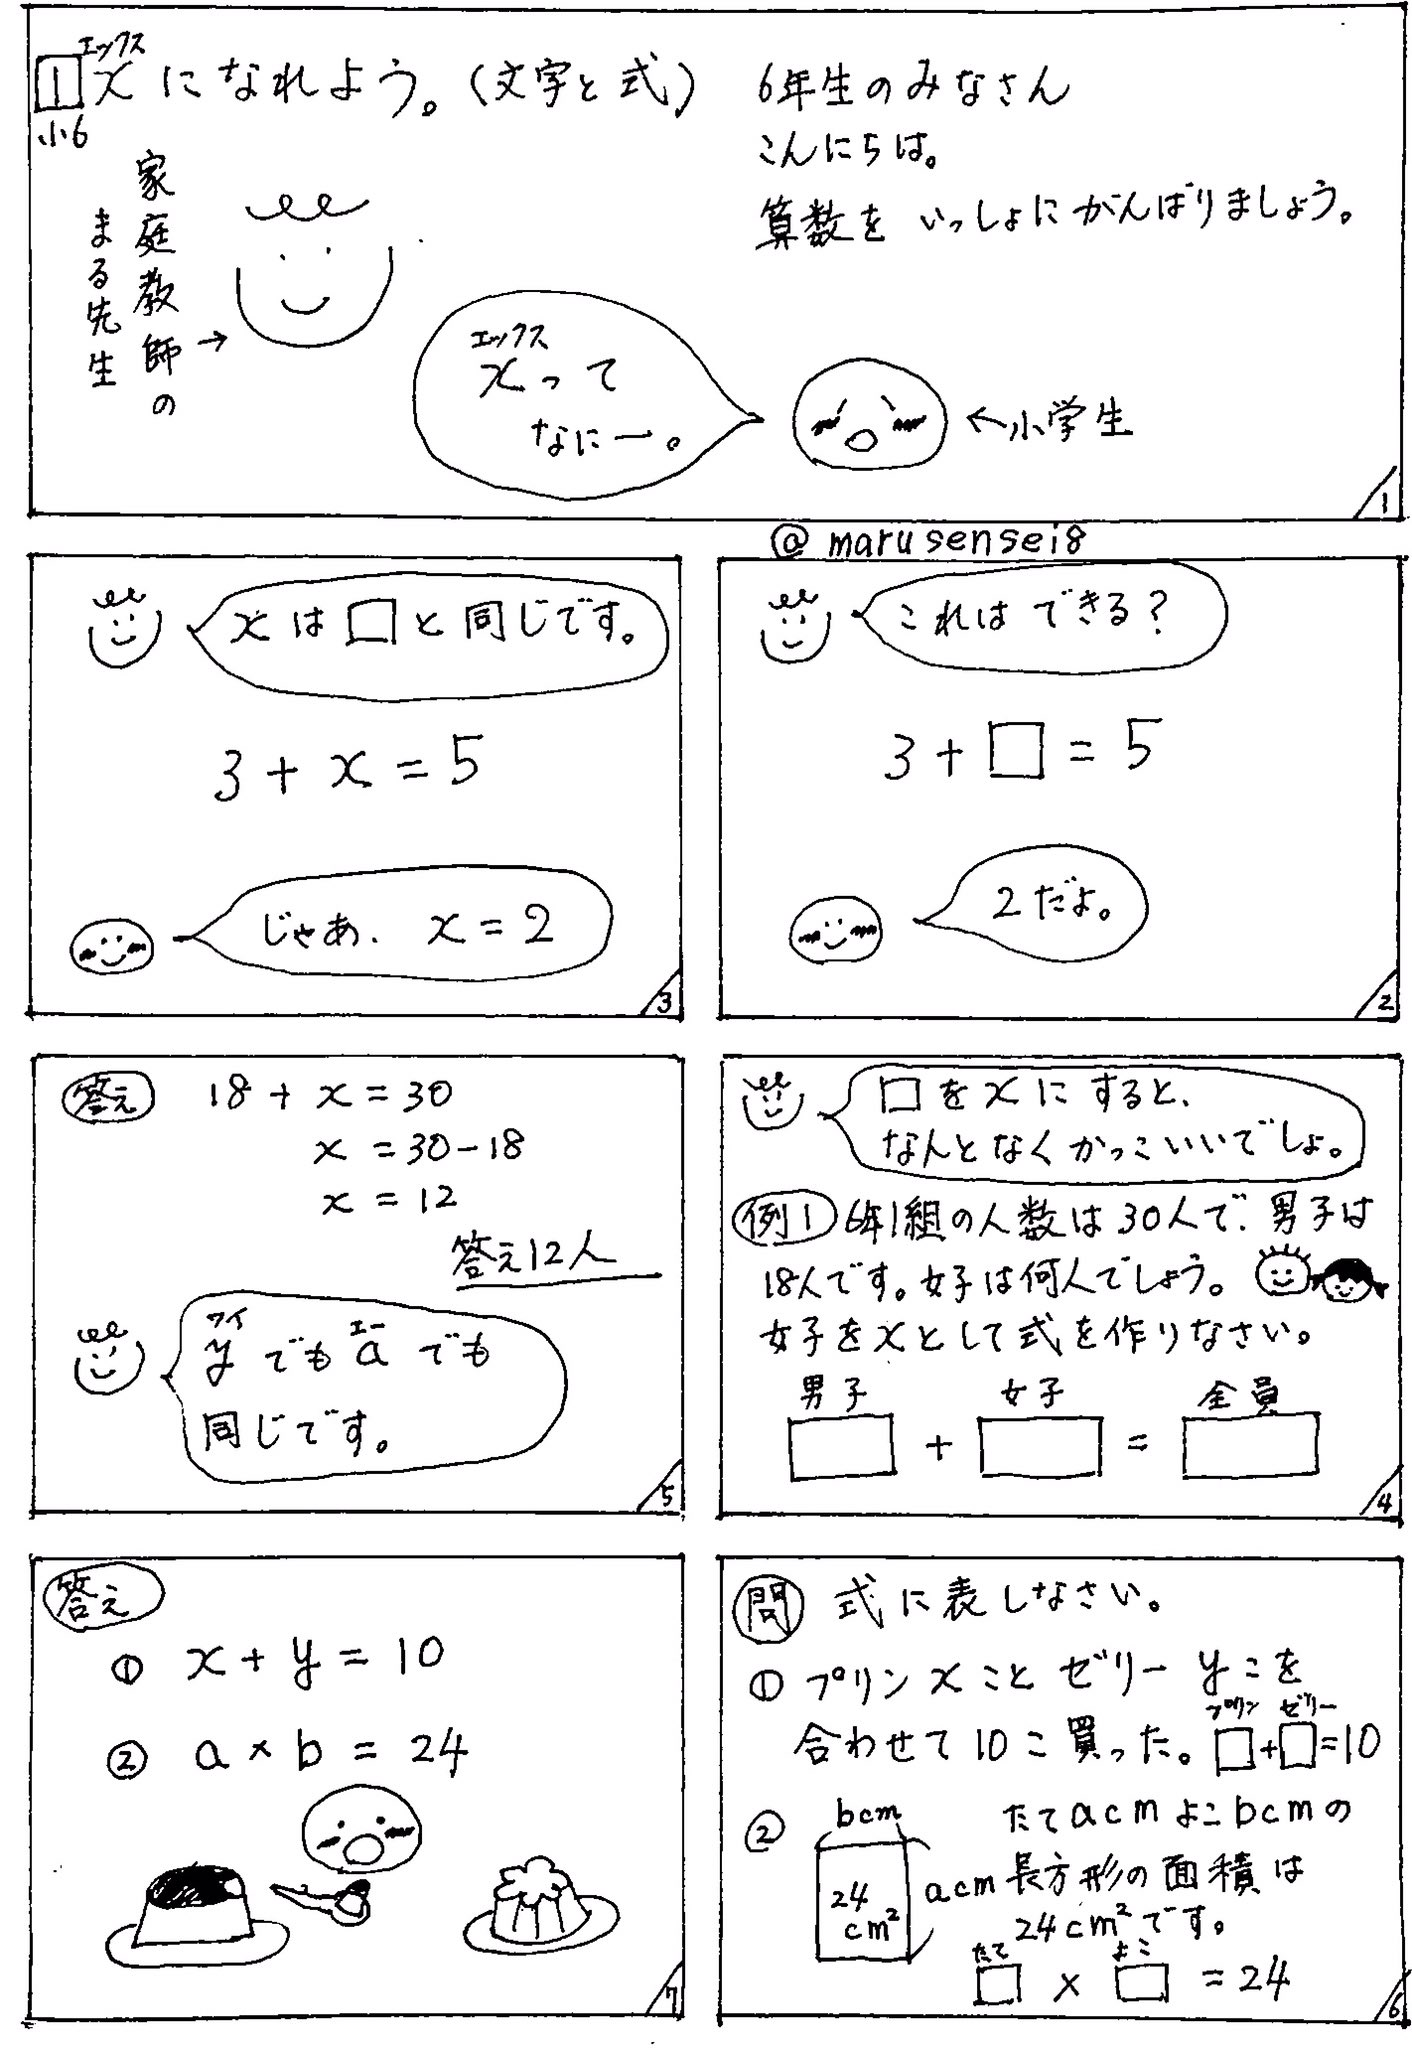 エックス
1 xになれよう。(文字と式)
小6
6年生のみなさん
こんにちは。
算数をいっしょにがんばりましょう。
家庭教師の
まる先生
→
エックス
xって
なにー。
←小学生
1
@marusensei8
これはできる?
3+□=5
2だよ。
2
xは□と同じです。
3+x=5
じゃあ、x=2
3
□をxにすると、
なんとなくかっこいいでしょ。
例1 6年1組の人数は30人で、男子は
18人です。女子は何人でしょう。
女子をxとして式を作りなさい。
男子 女子 全員
□+□=□
4
答え 18+x=30
x=30-18
x=12
答え12人
ワイ エー
yでもaでも
同じです。
5
問 式に表しなさい。
① プリンxことゼリーyこを
プリン ゼリー
合わせて10こ買った。□+□=10
② bcm
24
cm²
acm
たてacmよこbcmの
長方形の面積は
24cm²です。
たて よこ
□×□=24
6
答え
① x+y=10
② a×b=24
7